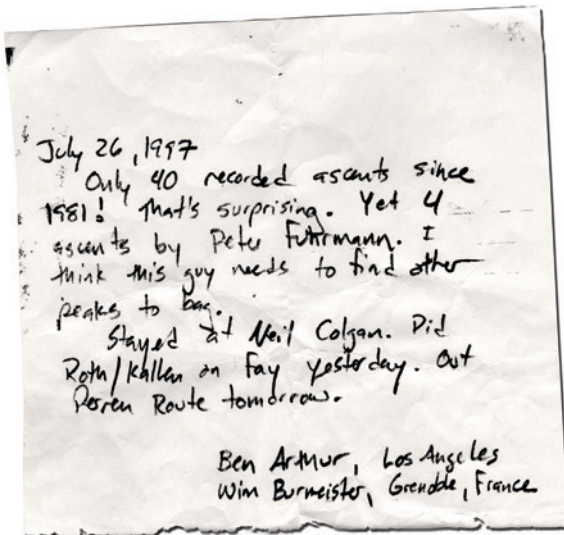 July 26, 1997
Only 40 recorded ascents since
1981! That's surprising. Yet 4
ascents by Peter Fuhrmann. I
think this guy needs to find other
peaks to bag.
Stayed at Neil Colgan. Did
Roth/Kallen on Fay yesterday. Out
Perren Route tomorrow.
Ben Arthur, Los Angeles
Wim Burmeister, Grenoble, France